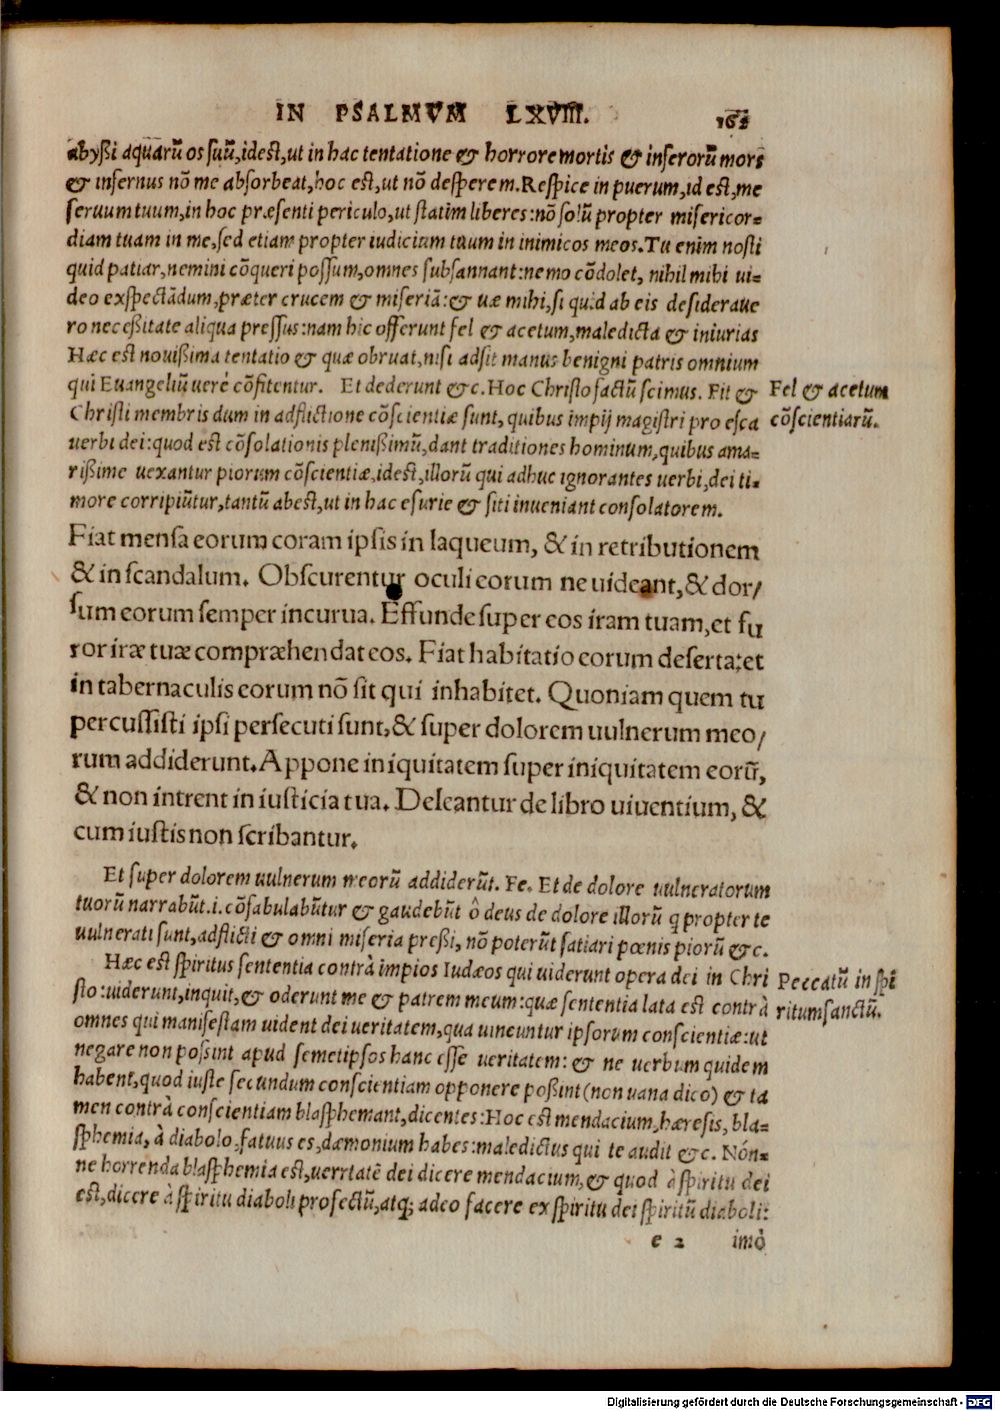 IN PSALMVM LXVIII.
abyßi aquarũ os suũ, idest, ut in hac tentatione & horrore mortis & inferorũ mors
& infernus nõ me absorbeat, hoc est, ut nõ desperem. Respice in puerum, id est, me
seruum tuum, in hoc præsenti periculo, ut statim liberes: nõ solũ propter misericor=
diam tuam in me, sed etiam propter iudicium tuum in inimicos meos. Tu enim nosti
quid patiar, nemini cõqueri possum, omnes subsannant: nemo cõdolet, nihil mihi ui=
deo exspectãdum, præter crucem & miseriã: & uæ mihi, si quid ab eis desideraue
ro neceßitate aliqua pressus: nam hic offerunt fel & acetum, maledicta & iniurias
Hæc est nouißima tentatio & quæ obruat, nisi adsit manus benigni patris omnium
qui Euangeliũ uerè cõfitentur. Et dederunt &c. Hoc Christo factũ scimus. Fit &
Fel & acetum
Christi membris dum in adflictione cõscientiæ sunt, quibus impij magistri pro esca
cõscientiarũ.
uerbi dei: quod est cõsolationis plenißimũ, dant traditiones hominum, quibus ama=
rißime uexantur piorum cõscientiæ, idest, illorũ qui adhuc ignorantes uerbi, dei ti=
more corripiũtur, tantũ abest, ut in hac esurie & siti inueniant consolatorem.
Fiat mensa eorum coram ipsis in laqueum, & in retributionem
& in scandalum. Obscurentur oculi eorum ne uideant, & dor/
sum eorum semper incurua. Effunde super eos iram tuam, et fu
ror iræ tuæ compræhendat eos. Fiat habitatio eorum deserta: et
in tabernaculis eorum nõ sit qui inhabitet. Quoniam quem tu
percussisti ipsi persecuti sunt, & super dolorem uulnerum meo/
rum addiderunt. Appone iniquitatem super iniquitatem eorũ,
& non intrent in iusticia tua. Deleantur de libro uiuentium, &
cum iustis non scribantur.
Et super dolorem uulnerum meorũ addiderũt. Fe. Et de dolore uulneratorum
tuorũ narrabũt. i. cõfabulabũtur & gaudebũt ô deus de dolore illorũ q propter te
uulnerati sunt, adflicti & omni miseria preßi, nõ poterũt satiari pœnis piorũ &c.
Hæc est spiritus sententia contrà impios Iudæos qui uiderunt opera dei in Chri
Peccatũ in spi
sto: uiderunt, inquit, & oderunt me & patrem meum: quæ sententia lata est contrà
ritum sanctũ.
omnes qui manifestam uident dei ueritatem, qua uincuntur ipsorum conscientiæ: ut
negare non possint apud semetipsos hanc esse ueritatem: & ne uerbum quidem
habent, quod iuste secundum conscientiam opponere poßint (non uana dico) & ta
men contrà conscientiam blasphemant, dicentes: Hoc est mendacium, hæresis, bla=
sphemia, à diabolo, fatuus es, dæmonium habes: maledictus qui te audit &c. Nón=
ne horrenda blasphemia est, uerrtatẽ dei dicere mendacium, & quod à spiritu dei
est, dicere à spiritu diaboli profectũ, atq; adeo facere ex spiritu dei spiritũ diaboli:
e 2 imò
Digitalisierung gefördert durch die Deutsche Forschungsgemeinschaft - DFG